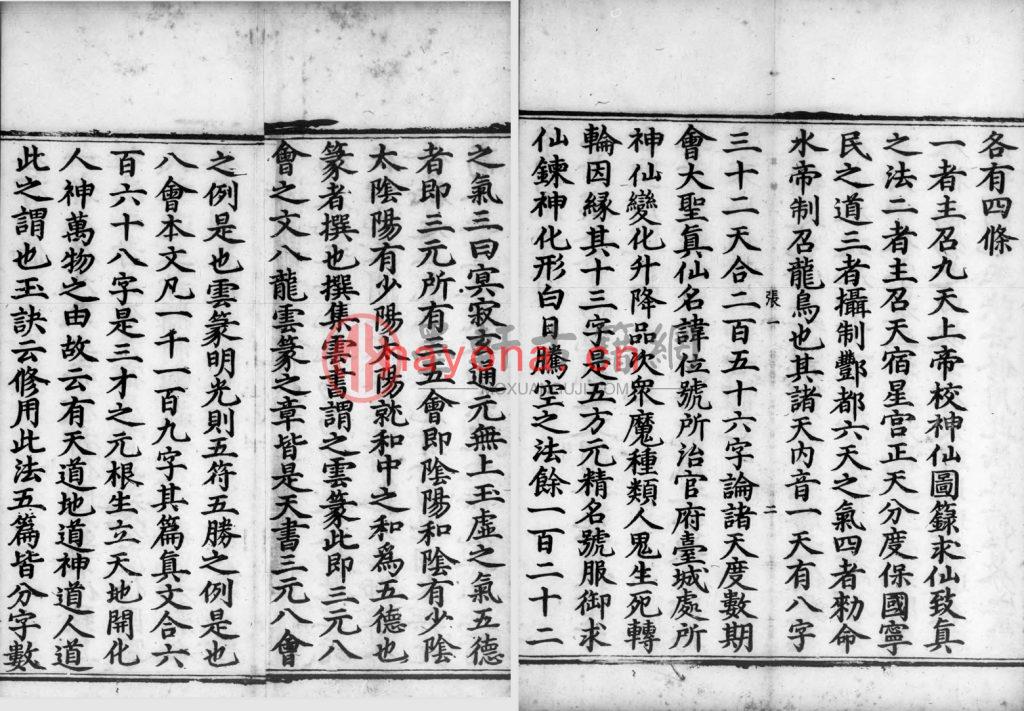 各有四條
一者主召九天上帝校神仙圖籙求仙致眞
之法二者主召天宿星宮正天分度保國寧
民之道三者攝制酆都六天之氣四者勑命
水帝制召龍鳥也其諸天内音一天有八字
張一 二
三十二天合二百五十六字論諸天度數期
會大聖眞仙名諱位號所治官府臺城處所
神仙變化升降品次衆魔種類人鬼生死轉
輪因緣其十三字是五方元精名號服御求
仙鍊神化形白日騰空之法餘一百二十二
之氣三曰冥寂玄通元無上玉虛之氣五德
者即三元所有三五會即陰陽和陰有少陰
太陰陽有少陽太陽就和中之和爲五德也
篆者撰也撰集雲書謂之雲篆此即三元八
會之文八龍雲篆之章皆是天書三元八會
之例是也雲篆明光則五符五勝之例是也
八會本文凡一千一百九字其篇眞文合六
百六十八字是三才之元根生立天地開化
人神萬物之由故云有天道地道神道人道
此之謂也玉訣云修用此法五篇皆分字數
hayona.cn